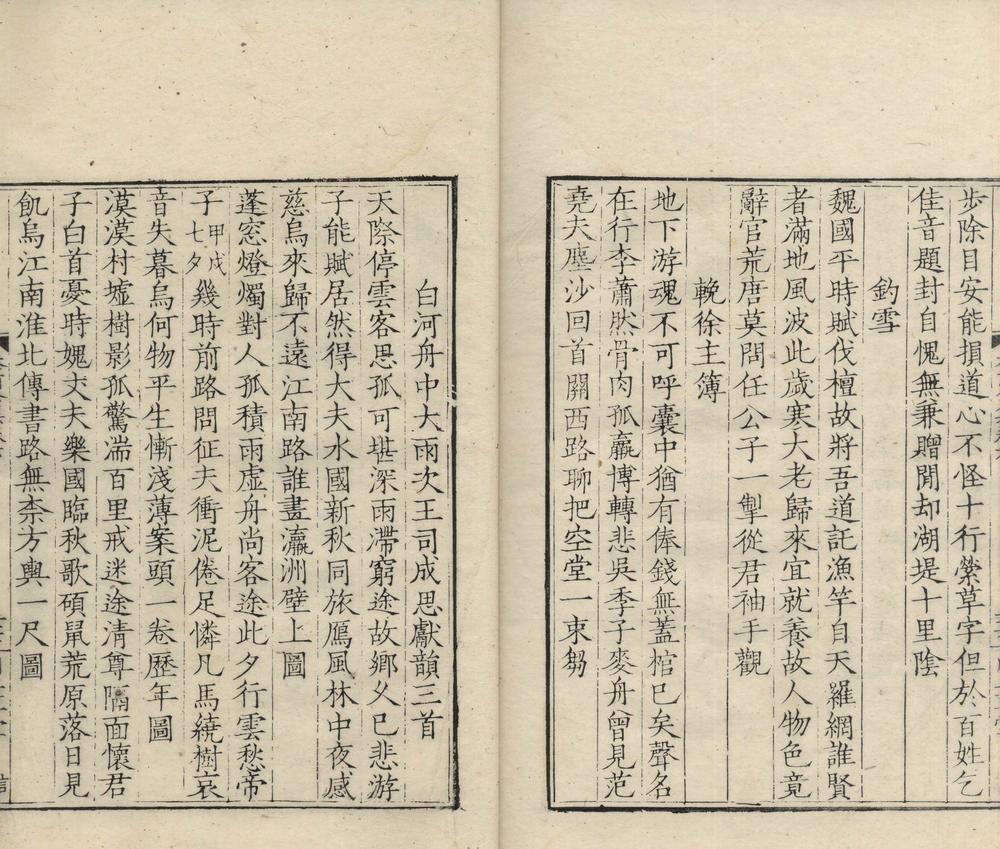 步除目安能損道心不怪十行縈草字但於百姓乞
佳音題封自愧無兼贈閒却湖堤十里陰
釣雪
魏國平時賦伐檀故將吾道託漁竿自天羅網誰賢
者滿地風波此歲寒大老歸來宜就養故人物色竟
辭官荒唐莫問任公子一掣從君袖手觀
輓徐主簿
地下游魂不可呼囊中猶有俸錢無蓋棺已矣聲名
在行李蕭然骨肉孤羸博轉悲吳季子麥舟曾見范
堯夫塵沙回首關西路聊把空堂一束芻
白河舟中大雨次王司成思獻韻三首
天際停雲客思孤可堪深雨滯窮途故鄉久已悲游
子能賦居然得大夫水國新秋同旅鴈風林中夜感
慈烏來歸不遠江南路誰畫瀛洲壁上圖
蓬窓燈燭對人孤積雨虛舟尚客途此夕行雲愁帝
子甲戌七夕幾時前路問征夫衝泥倦足憐凡馬繞樹哀
音失暮烏何物平生慚淺薄案頭一卷歷年圖
漠漠村墟樹影孤驚湍百里戒迷途清尊隔面懷君
子白首憂時媿丈夫樂國臨秋歌碩鼠荒原落日見
飢烏江南淮北傳書路無柰方輿一尺圖